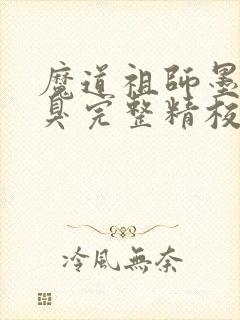 魔道祖師墨
臭完整精校
冷風無奈